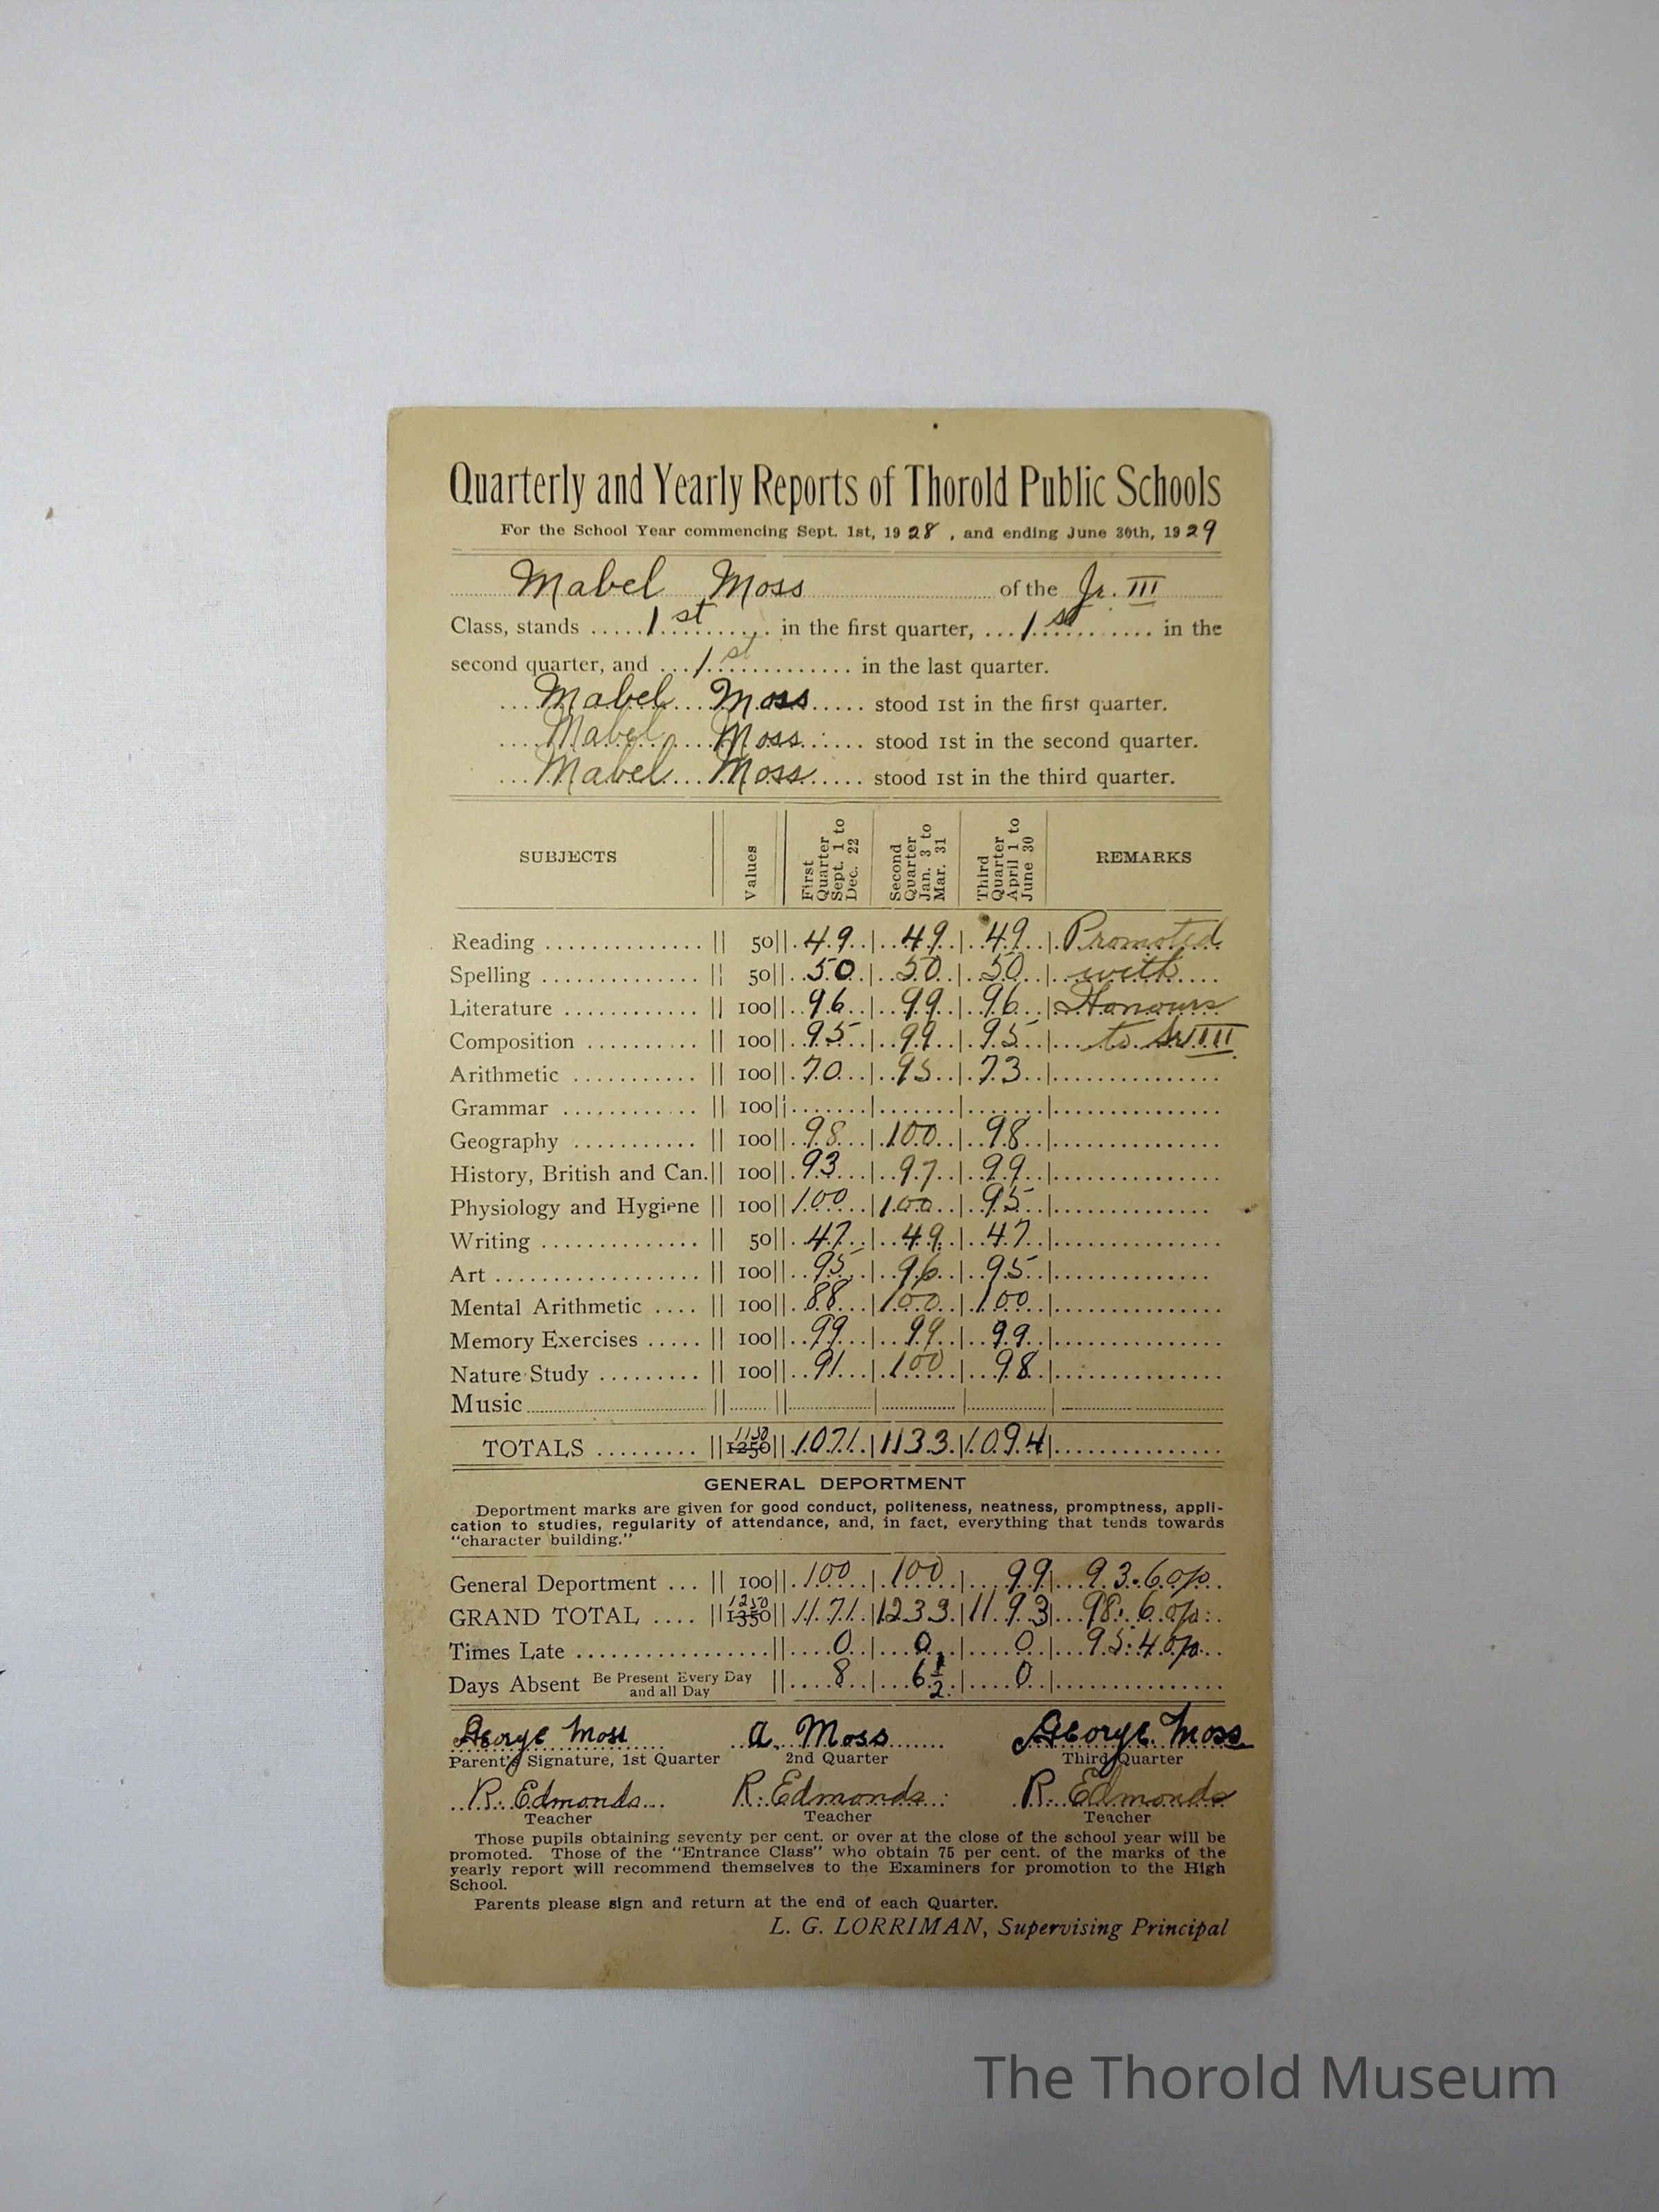 Quarterly and Yearly Reports of Thorold Public Schools
For the School Year commencing Sept. 1st, 1928, and ending June 30th, 1929
Mabel Moss of the Jr. III
Class, stands 1st in the first quarter, 1st in the
second quarter, and 1st in the last quarter.
Mabel Moss stood 1st in the first quarter.
Mabel Moss stood 1st in the second quarter.
Mabel Moss stood 1st in the third quarter.
SUBJECTS Values First Quarter Sept. 1 to Dec. 22 Second Quarter Jan. 3 to Mar. 31 Third Quarter April 1 to June 30 REMARKS
Reading 50 49 49 49 Promoted
Spelling 50 50 50 50 with
Literature 100 96 99 96 Honours
Composition 100 95 99 95 to Sr III
Arithmetic 100 70 95 73
Grammar 100
Geography 100 98 100 98
History, British and Can. 100 93 97 99
Physiology and Hygiene 100 100 100 95
Writing 50 47 49 47
Art 100 95 96 95
Mental Arithmetic 100 88 100 100
Memory Exercises 100 99 99 99
Nature Study 100 91 100 98
Music
TOTALS 1150 1250 1071 1133 1094
GENERAL DEPORTMENT
Deportment marks are given for good conduct, politeness, neatness, promptness, appli-
cation to studies, regularity of attendance, and, in fact, everything that tends towards
"character building."
General Deportment 100 100 100 99 93.6%
GRAND TOTAL 1250 1350 1171 1233 1193 98.6%
Times Late 0 0 0 95.4%
Days Absent Be Present Every Day and all Day 8 6 1/2 0
George Moss A. Moss George Moss
Parent's Signature, 1st Quarter 2nd Quarter Third Quarter
R. Edmonds R. Edmonds R. Edmonds
Teacher Teacher Teacher
Those pupils obtaining seventy per cent. or over at the close of the school year will be
promoted. Those of the "Entrance Class" who obtain 75 per cent. of the marks of the
yearly report will recommend themselves to the Examiners for promotion to the High
School.
Parents please sign and return at the end of each Quarter.
L. G. LORRIMAN, Supervising Principal
The Thorold Museum